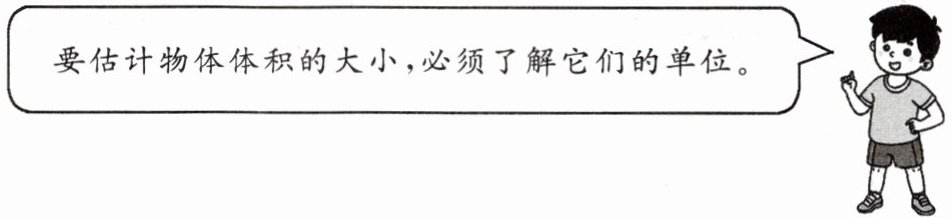 要估计物体体积的大小,必须了解它们的单位。